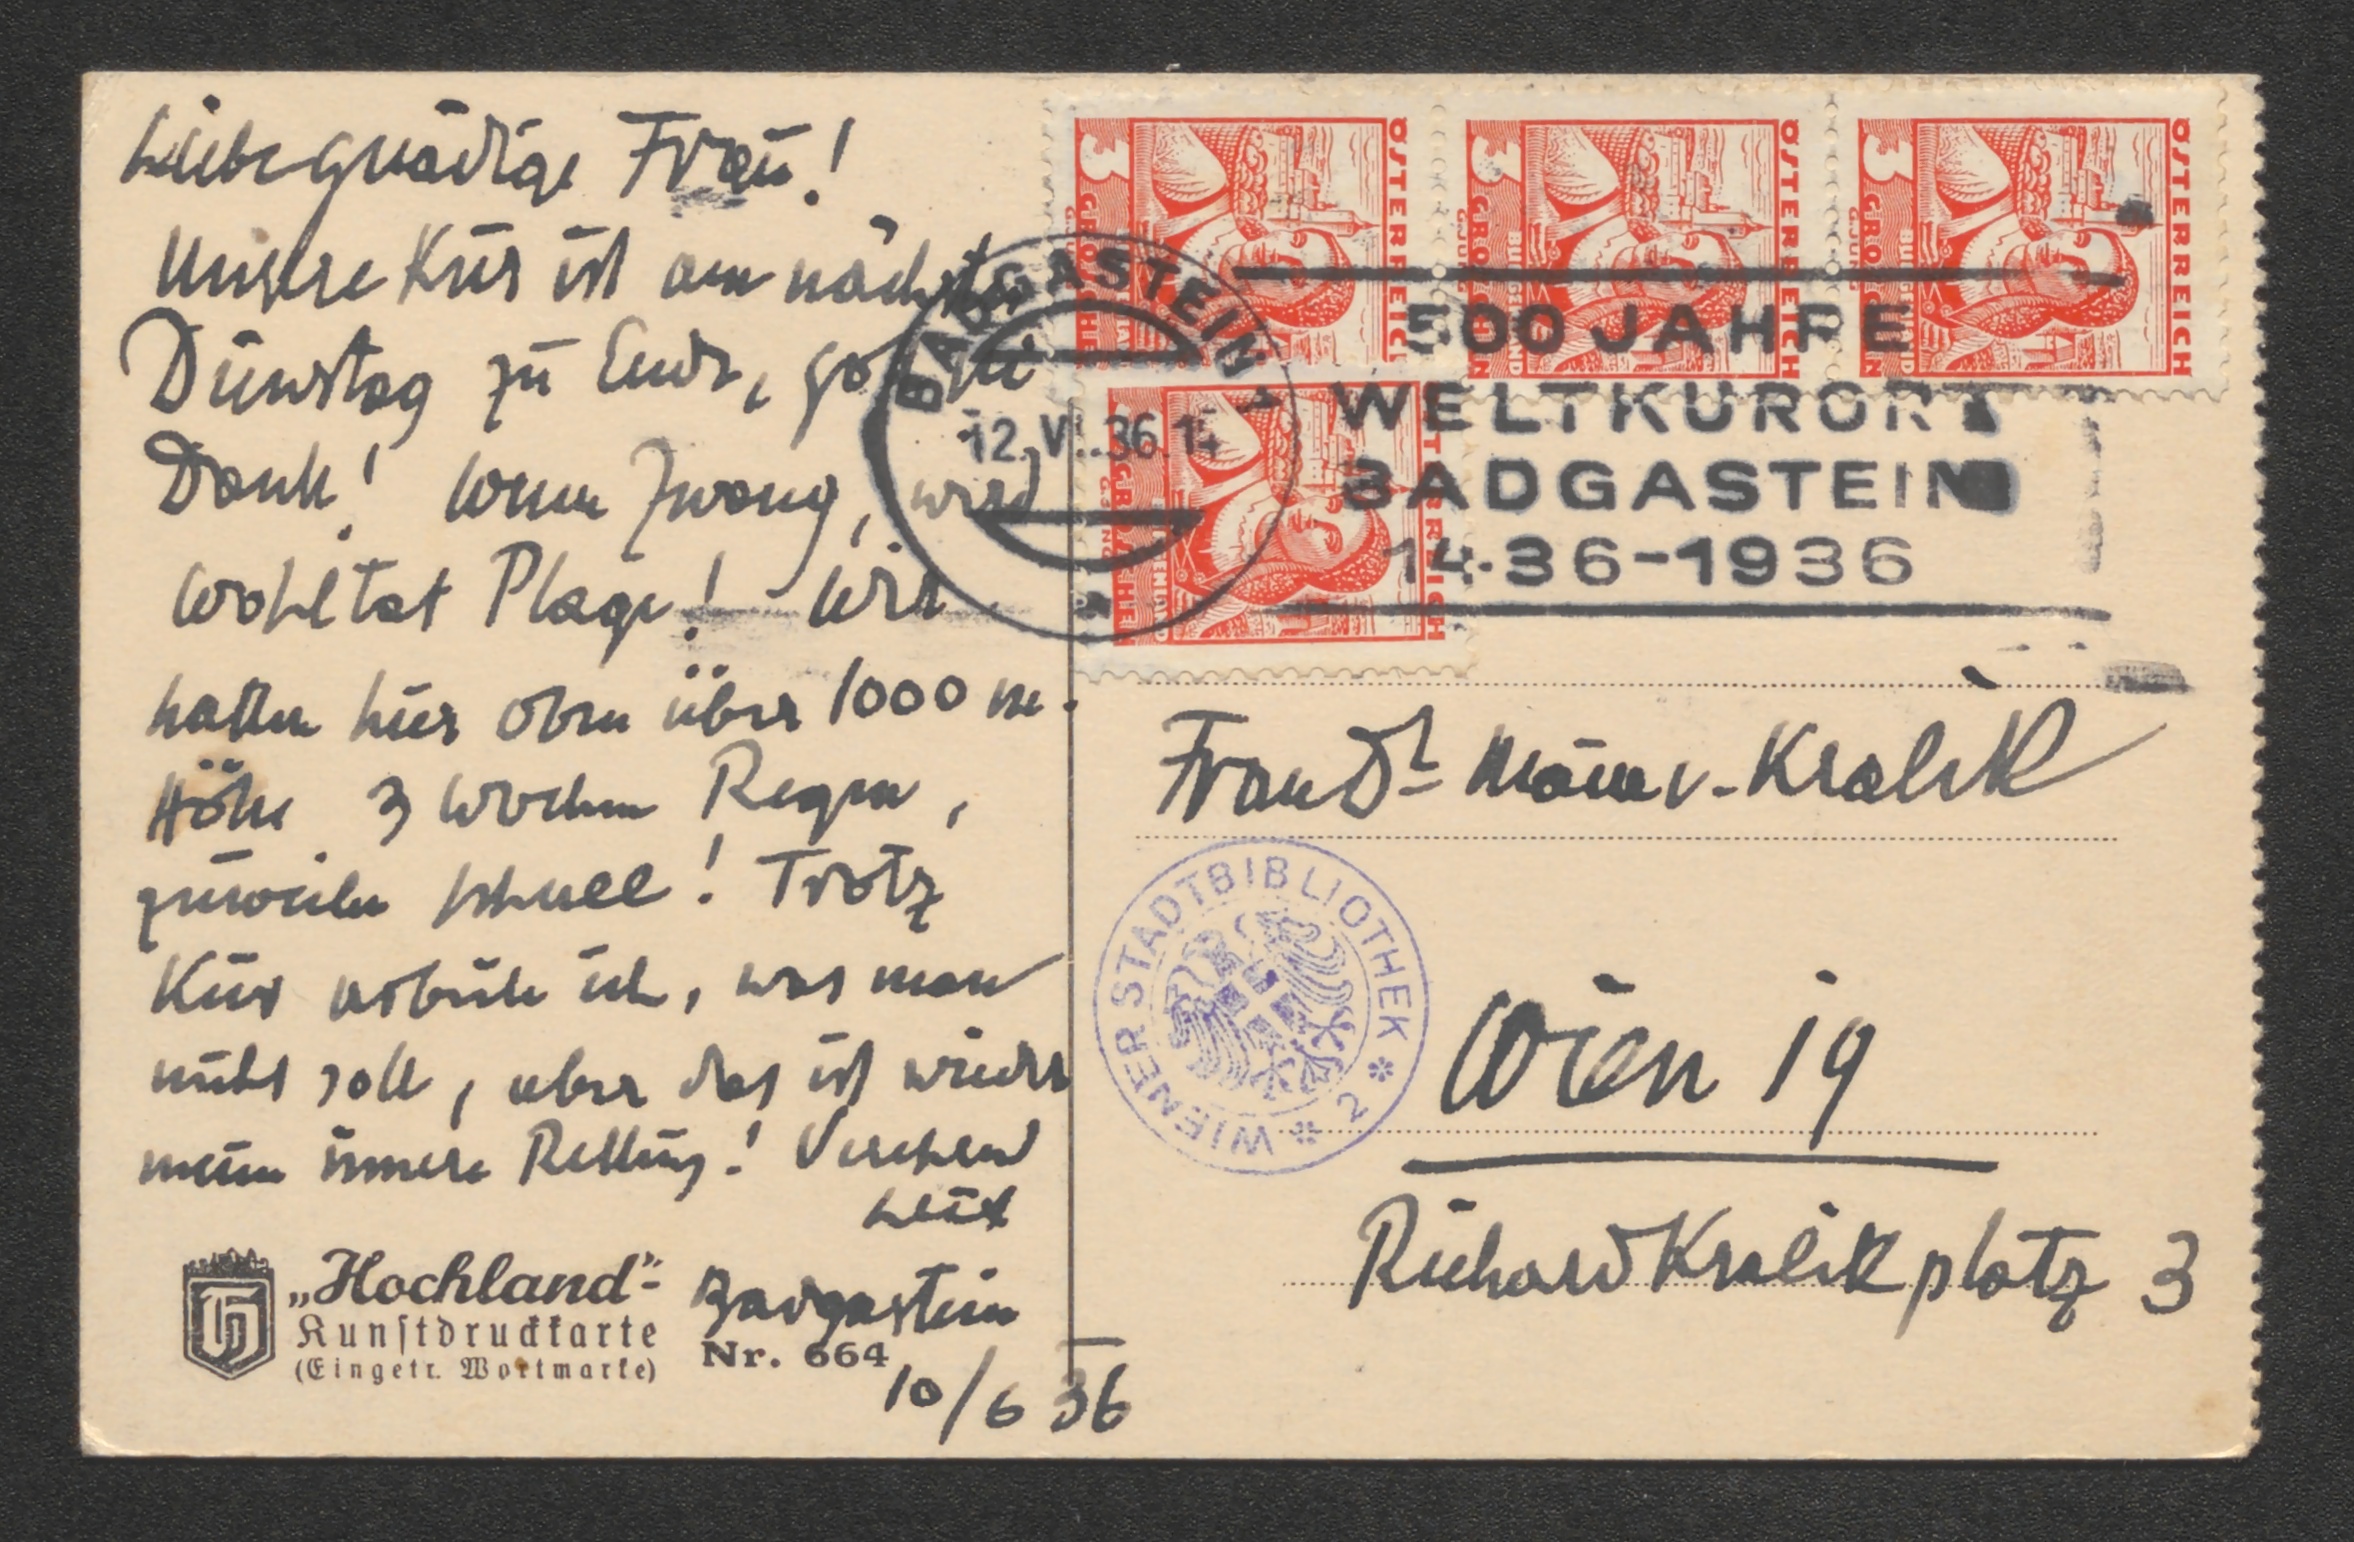 Liebe gnädige Frau!
Unsere Kur ist am nächsten
Dienstag zu Ende, gott sei
Dank! Wenn Zwang, wird
Wohltat Plage! Wir
hatten hier oben über 1000 m.
Höhe 3 Wochen Regen,
zuweilen Schnee! Trotz
Kur arbeite ich, was man
nicht soll, aber das ist wieder
meine innere Rettung! Verehrend
Badgastein
10/6 36
„Hochland“-
Kunstdruckkarte
(Eingetr. Wortmarke)
Nr. 664
3 GROSCHEN ÖSTERREICH
BURGENLAND
3 GROSCHEN ÖSTERREICH
BURGENLAND
3 GROSCHEN ÖSTERREICH
BURGENLAND
3 GROSCHEN ÖSTERREICH
BURGENLAND
BADGASTEIN 1
12.VI.36.14
500 JAHRE
WELTKURORT
BADGASTEIN
1436-1936
Frau Dr v. Kralik
WIENER STADTBIBLIOTHEK * 2 *
Wien 19
Richard Kralikplatz 3